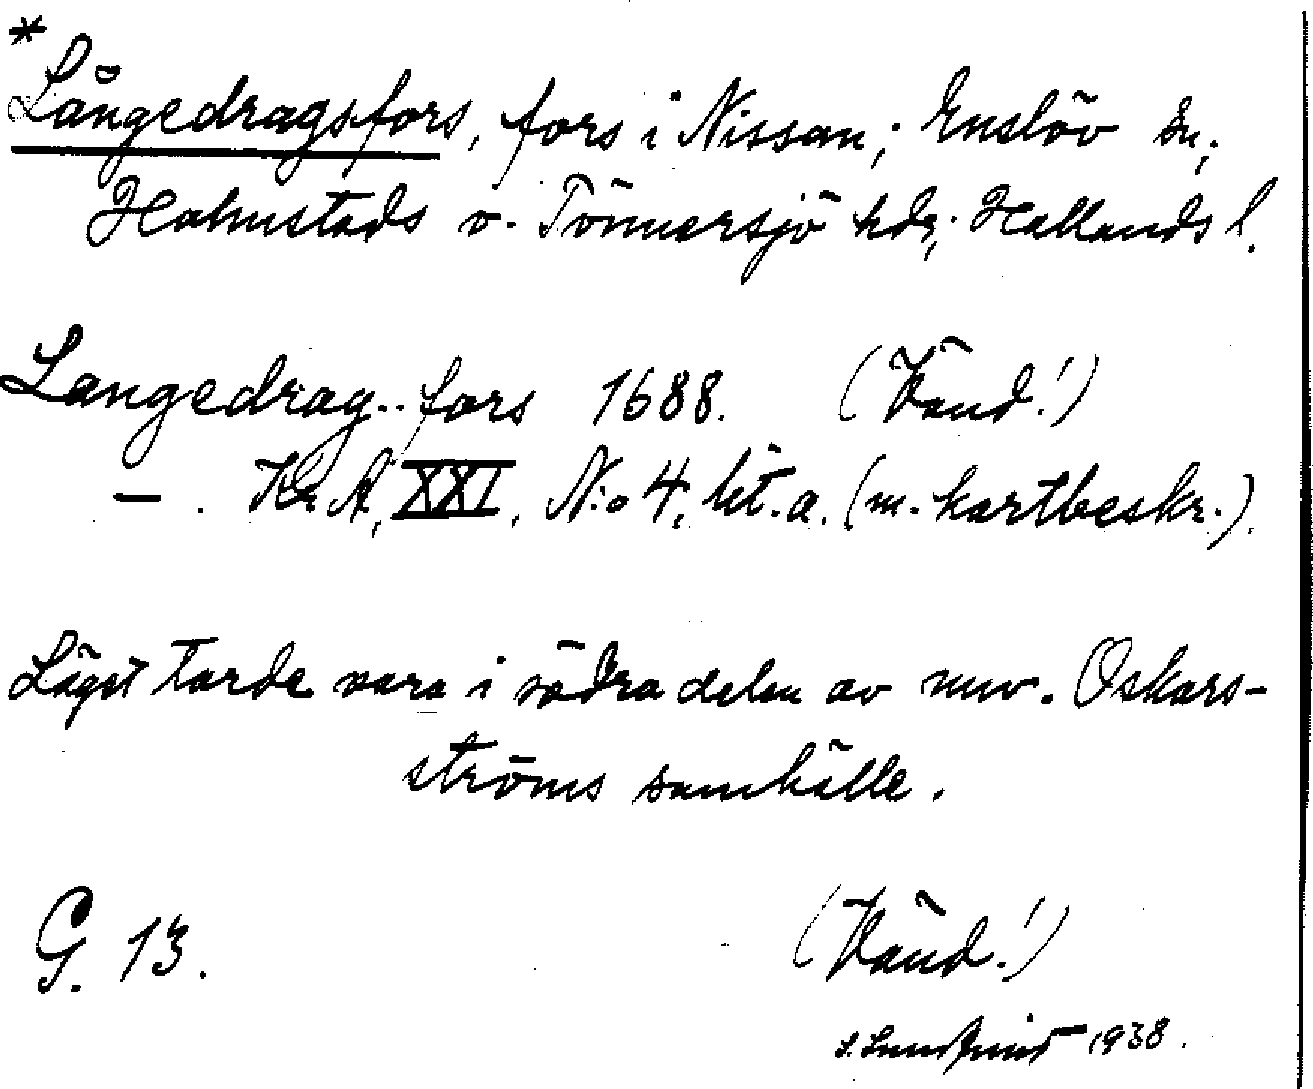 *
Långedragsfors, fors i Nissan; Enslöv sn;
Halmstads o. Tönnersjö hdr; Hallands l.
Langedrag.. fors 1688. (Vänd!)
— . Kr. A, XXI, N:o 4, lit. a. (m. kartbeskr.).
Läget torde vara i södra delen av nuv. Oskars-
ströms samhälle.
G. 13. (Vänd!)
1938.